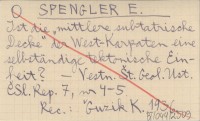 O SPENGLER E.
Ist die „mittlere subtatrische
Decke" der West-Karpaten eine
selbständige tektonische Ein-
heit? — Vestn. Št. Geol. Úst.
ČSl. Rep. 7, nr 4-5
Rec.: Guzik K. 1936